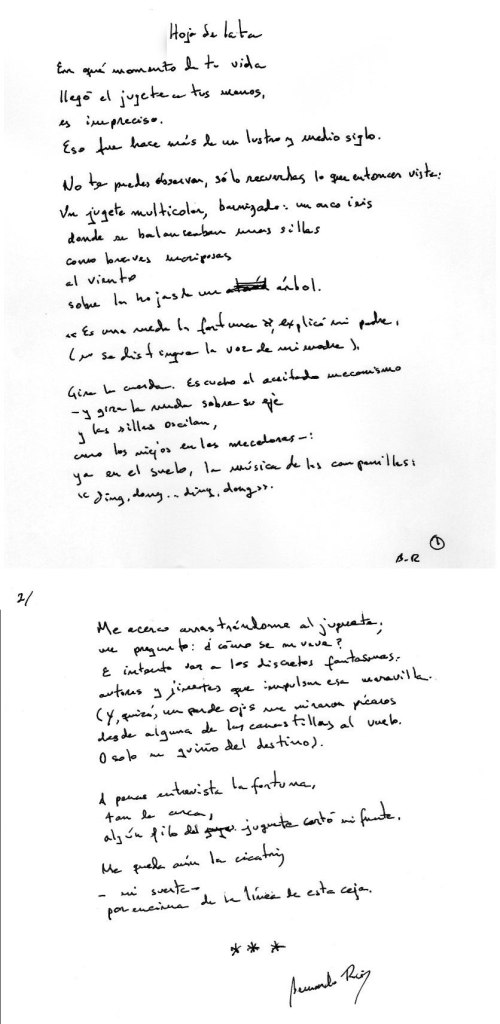 Hoja de lata
En qué momento de tu vida
llegó el jugete a tus manos,
es impreciso.
Eso fue hace más de un lustro y medio siglo.
No te puedes observar, sólo recuerdas lo que entonces viste:
Un jugete multicolor, barnizado: un arco iris
donde se balanceaban unas sillas
como breves mariposas
al viento
sobre las hojas de un árbol.
«Es una rueda la fortuna», explicó mi padre,
(no se distingue la voz de mi madre).
Gira la cuerda. Escucho el aceitado mecanismo
—y gira la rueda sobre su eje
y las sillas oscilan,
como los viejos en las mecedoras—:
ya en el suelo, la música de las campanillas:
«ding, dong... ding, dong».
B.R 1
2/
Me acerco arrastrándome al juguete;
me pregunto: ¿cómo se mueve?
E intento ver a los discretos fantasmas,
autores y jinetes que impulsan esa maravilla.
(Y, quizá, un par de ojos me miraron pícaros
desde alguna de las canastillas al vuelo.
O sólo un guiño del destino).
Apenas entrevista la fortuna,
tan de cerca,
algún filo del juguete cortó mi frente.
Me queda aún la cicatriz
— mi suerte —
por encima de la línea de esta ceja.
* * *
Bernardo Ruiz